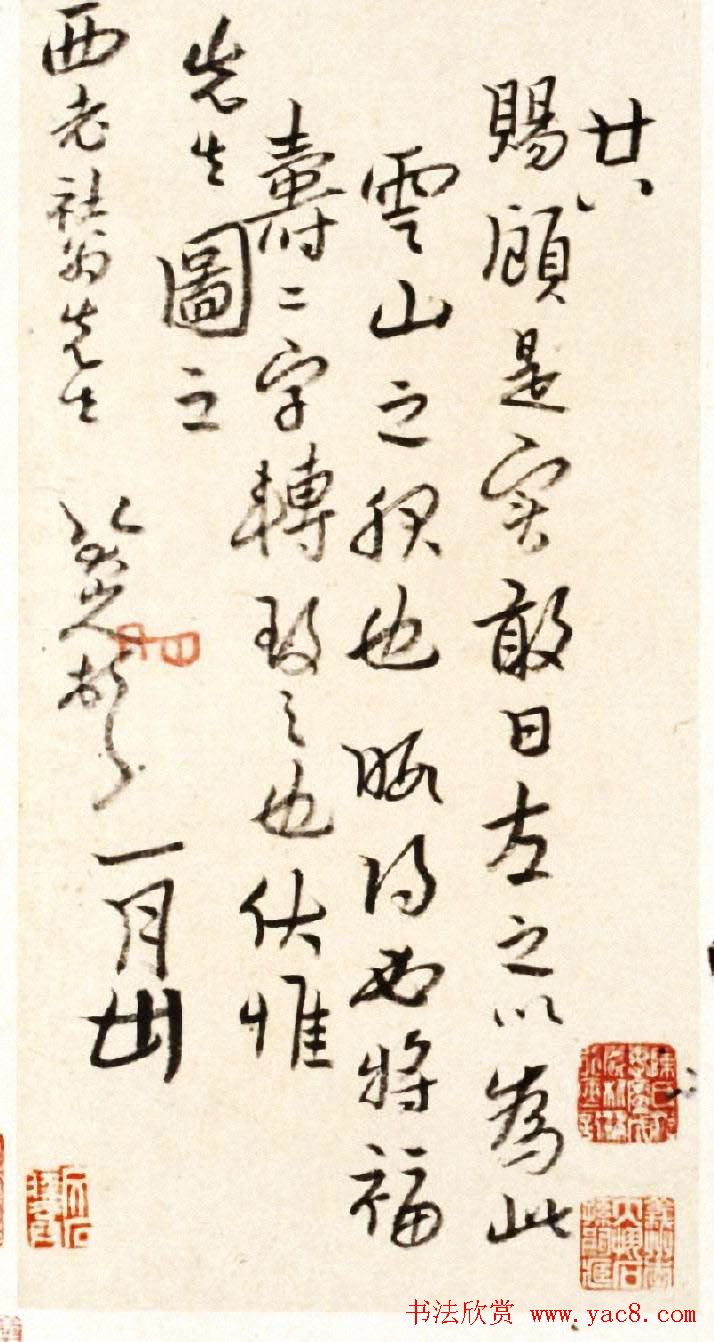 廿八
賜顧是实敢日左之以為此
雲山之
也
得如將福
壽二字轉致之也伏惟
先生圖之
西老社翁先生
八大山人頓首
一月
书法欣赏 www.yac8.com